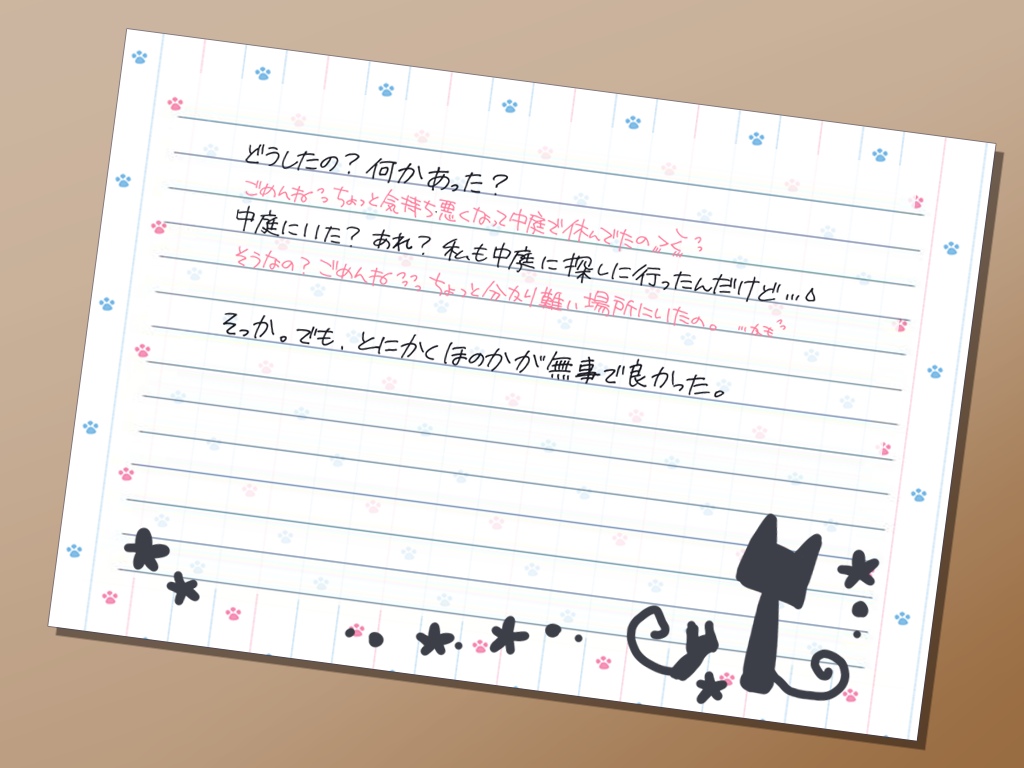 どうしたの？何かあった？
ごめんねっちょっと気持ち悪くなって中庭で休んでたのっ
中庭にいた？あれ？私も中庭に探しに行ったんだけど…。
そうなの？ごめんねっっっちょっと分かり難い場所にいたの。
そっか。でも、とにかくほのかが無事で良かった。